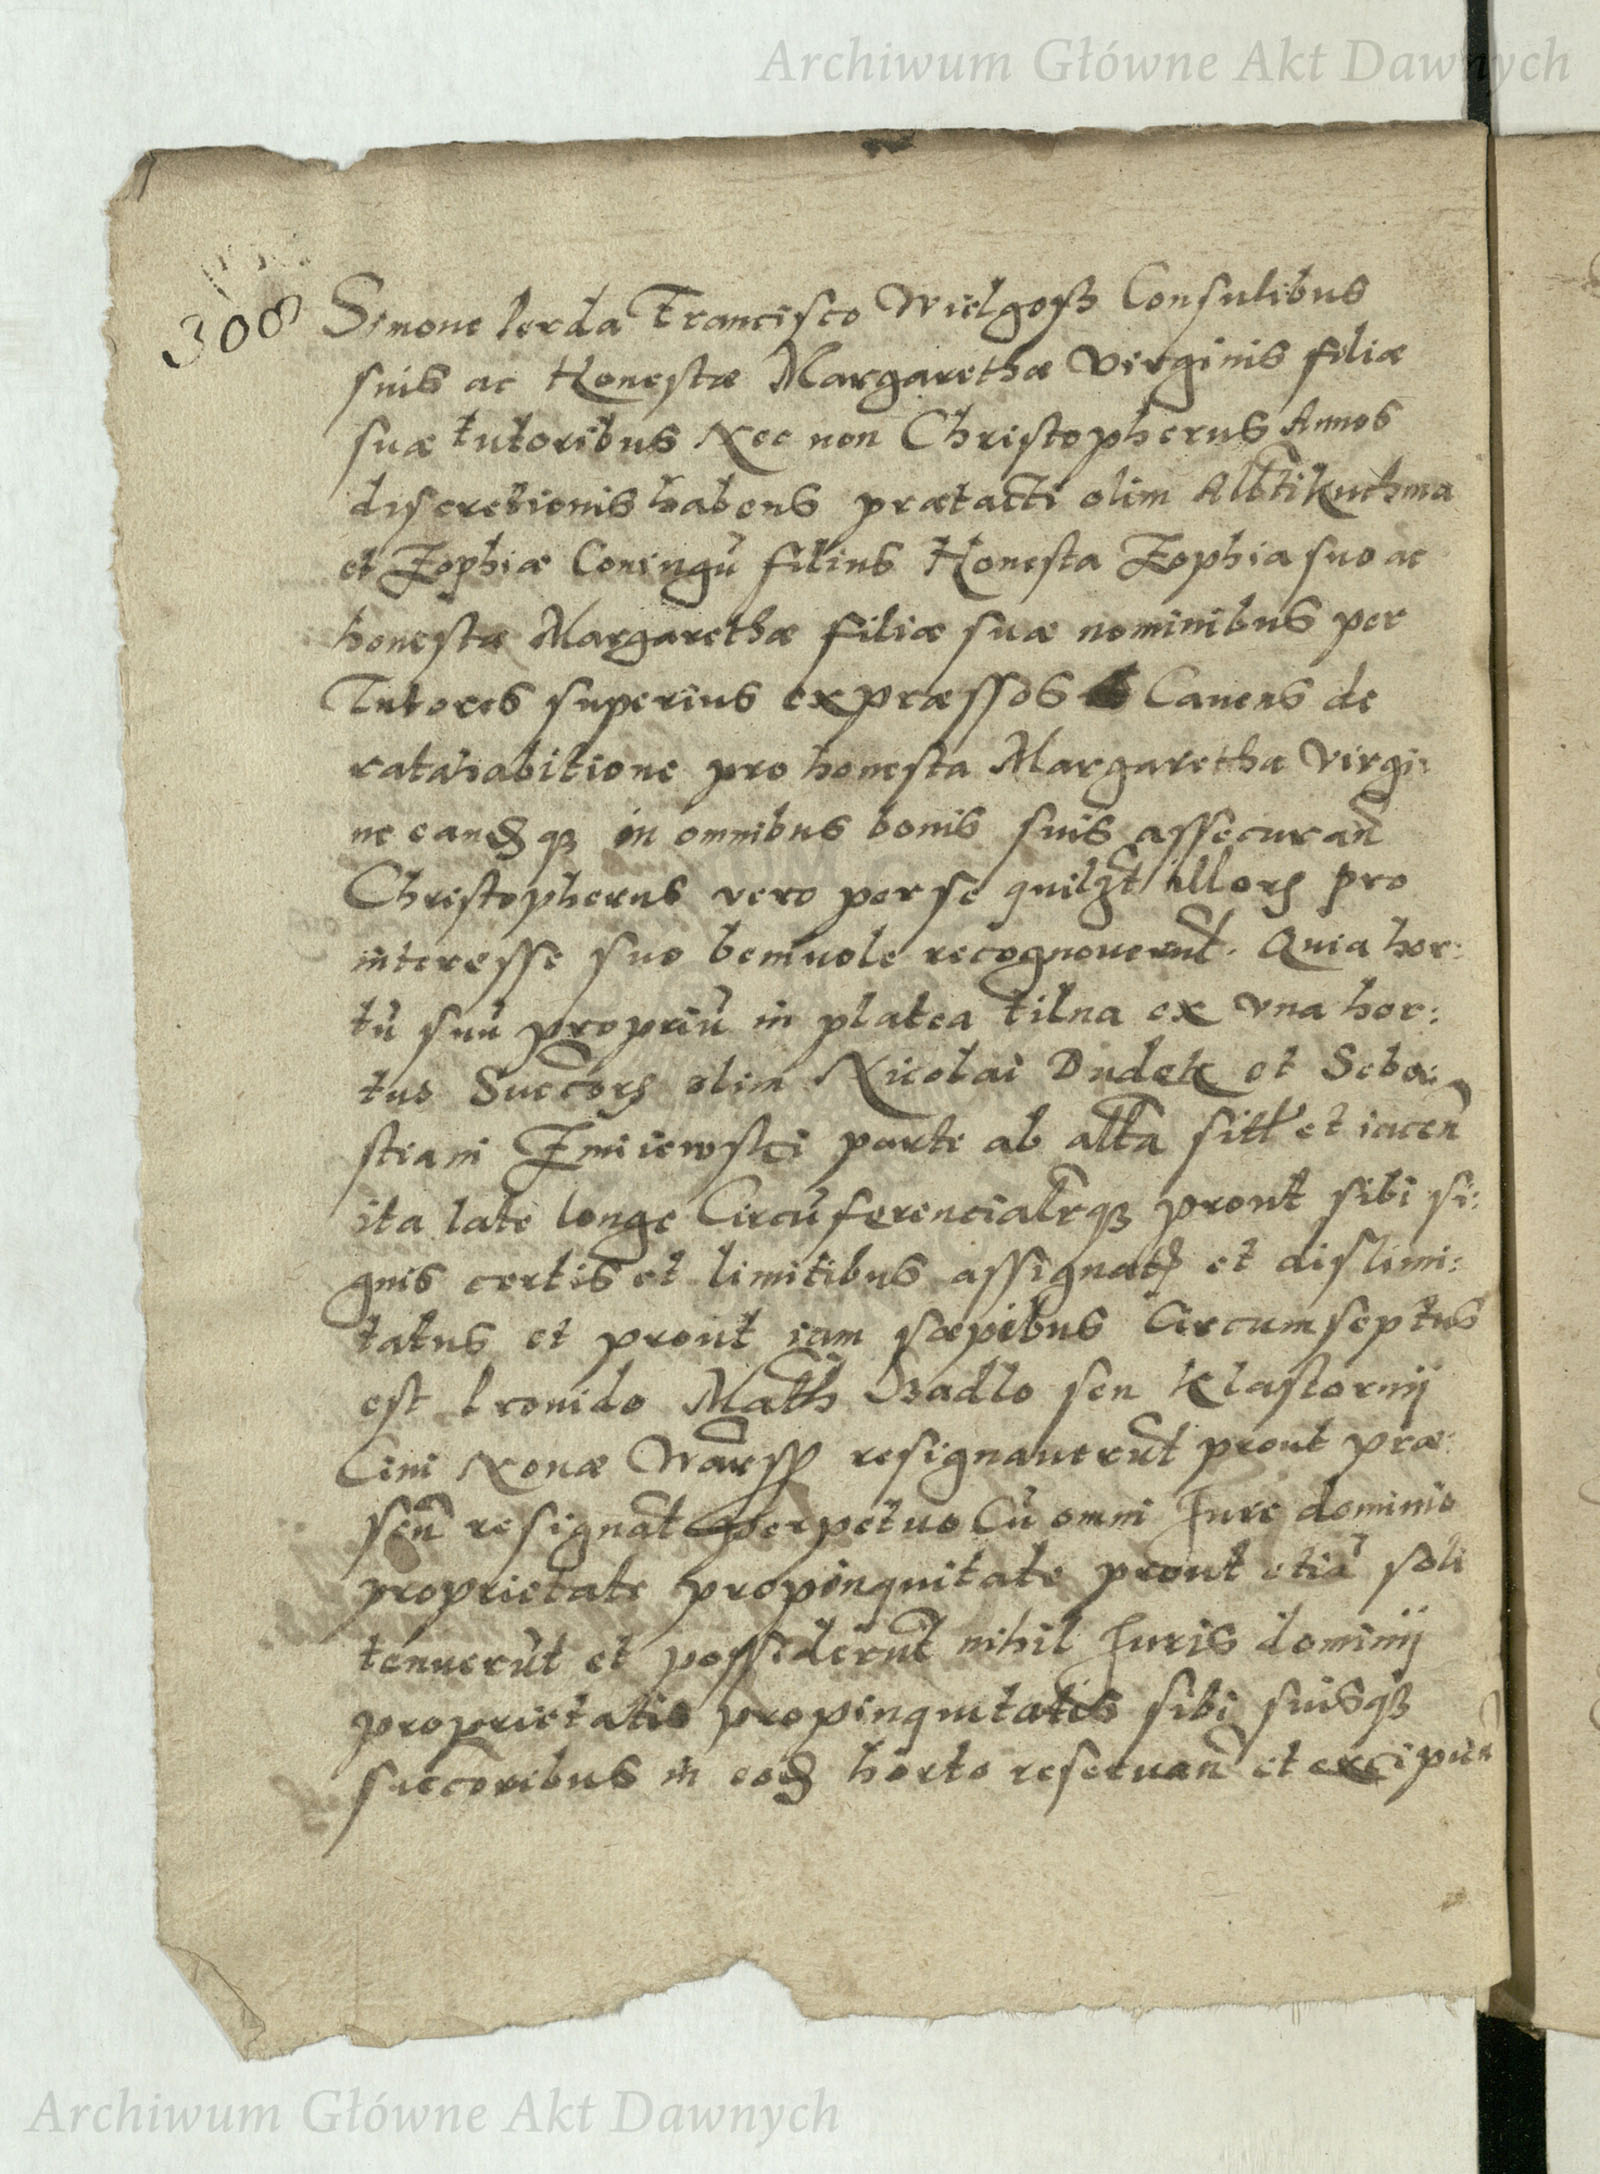 Archiwum Główne Akt Dawnych
308
Simone lerda Francisco Wielgosz Consulibus
suis ac Honestæ Margarethæ Virginis filiæ
suæ tutoribus Nec non Christopherus Annos
discretionis habens prætacti olim Alb̄ti Kuchma
et Zophiæ Coniugū filius Honesta Zophia suo ac
honestæ Margarethæ filiæ suæ nominibus per
Tutores superius expræssos Cauens de
ratahabitione pro honesta Margaretha Virgi:
ne eandꝫ qꝫ in omnibus bonis suis assecuran̄
Christopherus vero per se quilꝫt illorꝫ pro
interesse suo beniuole recognouerūt. Quia hor:
tū suū propriū in platea tilna ex vna hor:
tus Succōrꝫ olim Nicolai Dudek et Seba:
stiani Zmiiewski parte ab altā sitꝉ et iacen̄
ita late longe Circūferencialrqꝫ prout sibi si:
gnis certis et limitibus assignatꝫ et dislimi:
tatus et prout iam sæpibus Circumseptus
est Math Badlo seu Klastornij
Ciui Nouæ Warsꝫ resignauerūt prout præ:
sen̄ resignāt perpetuo Cū omni Iure dominio
proprietate propinquitate prout etiā soli
tenuerūt et possiderūt nihil Iuris dominij
proprietatis propinquitatis sibi suisqꝫ
succōribus in eodꝫ horto reseruan̄ et excipien̄
Archiwum Główne Akt Dawnych